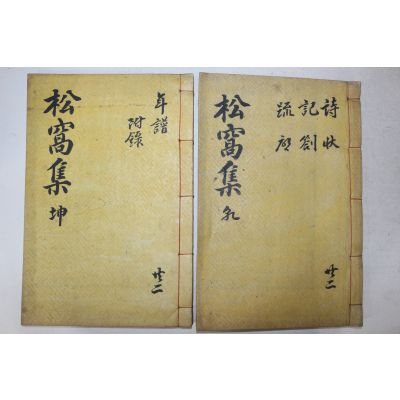 詩狀
記劄
疏啓
松窩集 乾
共二
年譜
附錄
松窩集 坤
共二